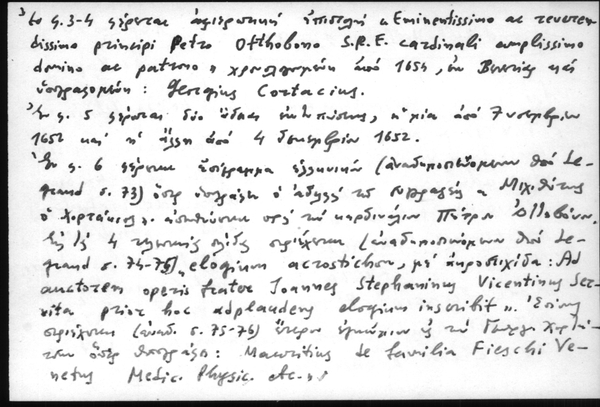 Ἐν σ. 3-4 φέρεται ἀφιερωτικὴ ἐπιστολὴ « Eminentissimo ac reveren-
dissimo principi Petro Othobono S.R.E. cardinali amplissimo
domino ac patrono » χρονολογουμένη ἀπὸ 1654, ἐν Βενετίᾳ καὶ
ὑπογραφομένη : Georgius Cortacius.
Ἐν σ. 5 φέρονται δύο ἄδειαι ἐκτυπώσεως, ἡ μία ἀπὸ 7 νοεμβρίου
1652 καὶ ἡ ἄλλη ἀπὸ 4 δεκεμβρίου 1652.
Ἐν σ. 6 φέρεται ἐπίγραμμα ἑλληνικὸν (ἀναδημοσιευόμενον ὑπὸ Le-
grand σ. 73) ὅπερ ὑπογράφει ὁ ἀδελφὸς τοῦ συγγραφέως « Μιχ
ὁ Χορτάκιος ». ἀπευθύνεται πρὸς τὸν καρδινάλιον Πέτρον Ὀθοβόνον.
Εἰς τὰς 4 σελίδας περιέχεται (ἀναδημοσιευόμενον ὑπὸ Le-
grand σ. 74-75) „elogium acrostichon, μὲ ἀκροστιχίδα : Ad
auctorem operis frater Joannes Stephaninus Vicentinus Ser-
vita prior hoc adplaudens elogium inscribit ». Ἐπίσης
περιέχεται (ἀναδ. σ. 75-76) ἕτερον ἐγκώμιον εἰς τὸν Γεώργ. Χορτά-
τζην ὅπερ ὑπογράφει : Mauritius de familia Fieschi Ve-
netus Medic. Physic. etc. »